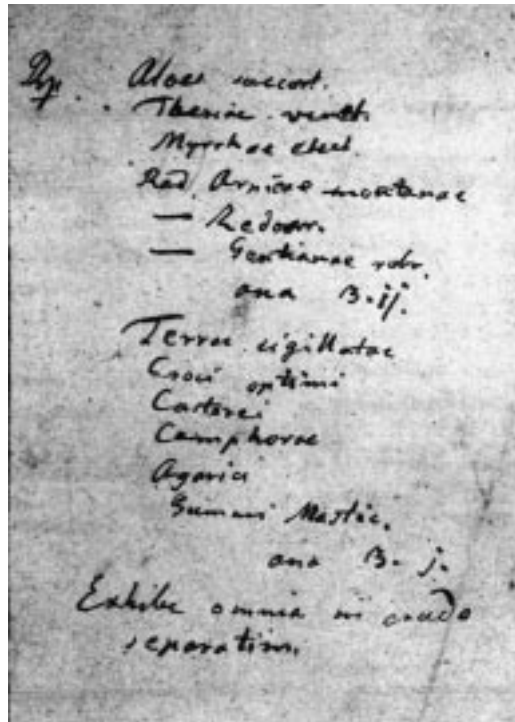 Rp. Aloes succot.
Theriac. venet.
Myrrhae elect.
Rad. Arnicae montanae
— Zedoar.
— Gentianae rubr.
ana ℥. ij.
Terrae sigillatae
Croci optimi
Castorei
Camphorae
Agarici
Gummi Mastic.
ana ℥. j.
Exhibe omnia in crudo
separatim.